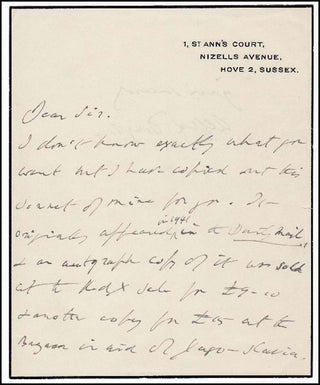 1, ST ANN'S COURT,
NIZELLS AVENUE,
HOVE 2, SUSSEX.
Dear Sir.
I don't know exactly what you
want but I have copied out this
Sonnet of mine for you. It
originally appeared, in 1941 in the Daily Mail
& an autograph copy of it was sold
at the Red X Sale for £9-10
& another copy for £15 at the
Bazaar in aid of Jugo-Slavia.